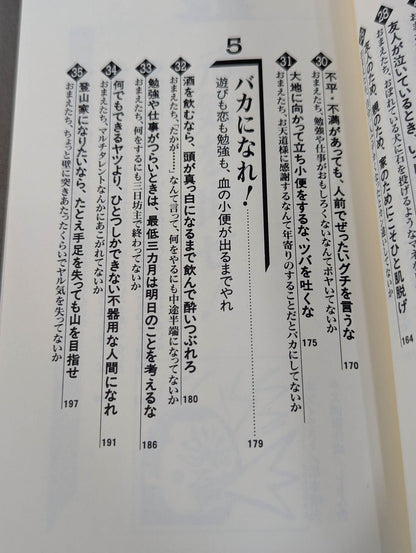 28
友人が泣いていると
おまえたち、おぼれている犬に石を投げ
友のため、親のため、家のためにこそひと肌脱げ
164
30
不平・不満があっても、人前でぜったいグチを言うな
おまえたち、勉強や仕事がおもしろくないなんてボヤいてないか
170
31
大地に向かって立ち小便をするな、ツバを吐くな
おまえたち、〝お天道様に感謝するなんて年寄りのすることだとバカにしてないか
175
5
バカになれ!
遊びも恋も勉強も、血の小便が出るまでやれ
179
32
酒を飲むなら、頭が真っ白になるまで飲んで酔いつぶれろ
おまえたち、「たかが……」なんて言って、何をやるにも中途半端になってないか
180
33
勉強や仕事がつらいときは、最低三カ月は明日のことを考えるな
おまえたち、何をするにも三日坊主で終わってないか
186
34
何でもできるヤツより、ひとつしかできない不器用な人間になれ
おまえたち、マルチタレントなんかにあこがれてないか
191
35
登山家になりたいなら、たとえ手足を失っても山を目指せ
おまえたち、ちょっと壁に突きあたったくらいでヤル気を失ってないか
197